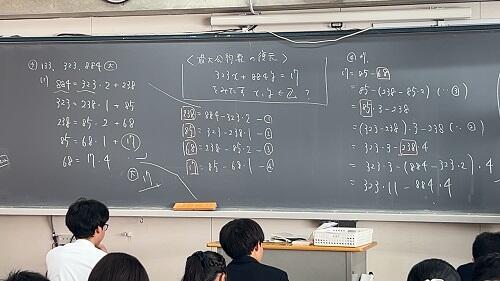 133, 323, 884
884 = 323・2 + 238
323 = 238・1 + 85
238 = 85・2 + 68
85 = 68・1 + 17
68 = 17・4
17
<最大公約数の復元>
323x + 884y = 17
をみたす x, y ∈ Z ?
238 = 884 - 323・2 -①
85 = 323 - 238・1 -②
68 = 238 - 85・2 -③
17 = 85 - 68・1 -④
17 = 85 - 68
= 85 - (238 - 85・2) (∵③)
= 85・3 - 238
= (323 - 238)・3 - 238 (∵②)
= 323・3 - 238・4
= 323・3 - (884 - 323・2)・4
= 323・11 - 884・4